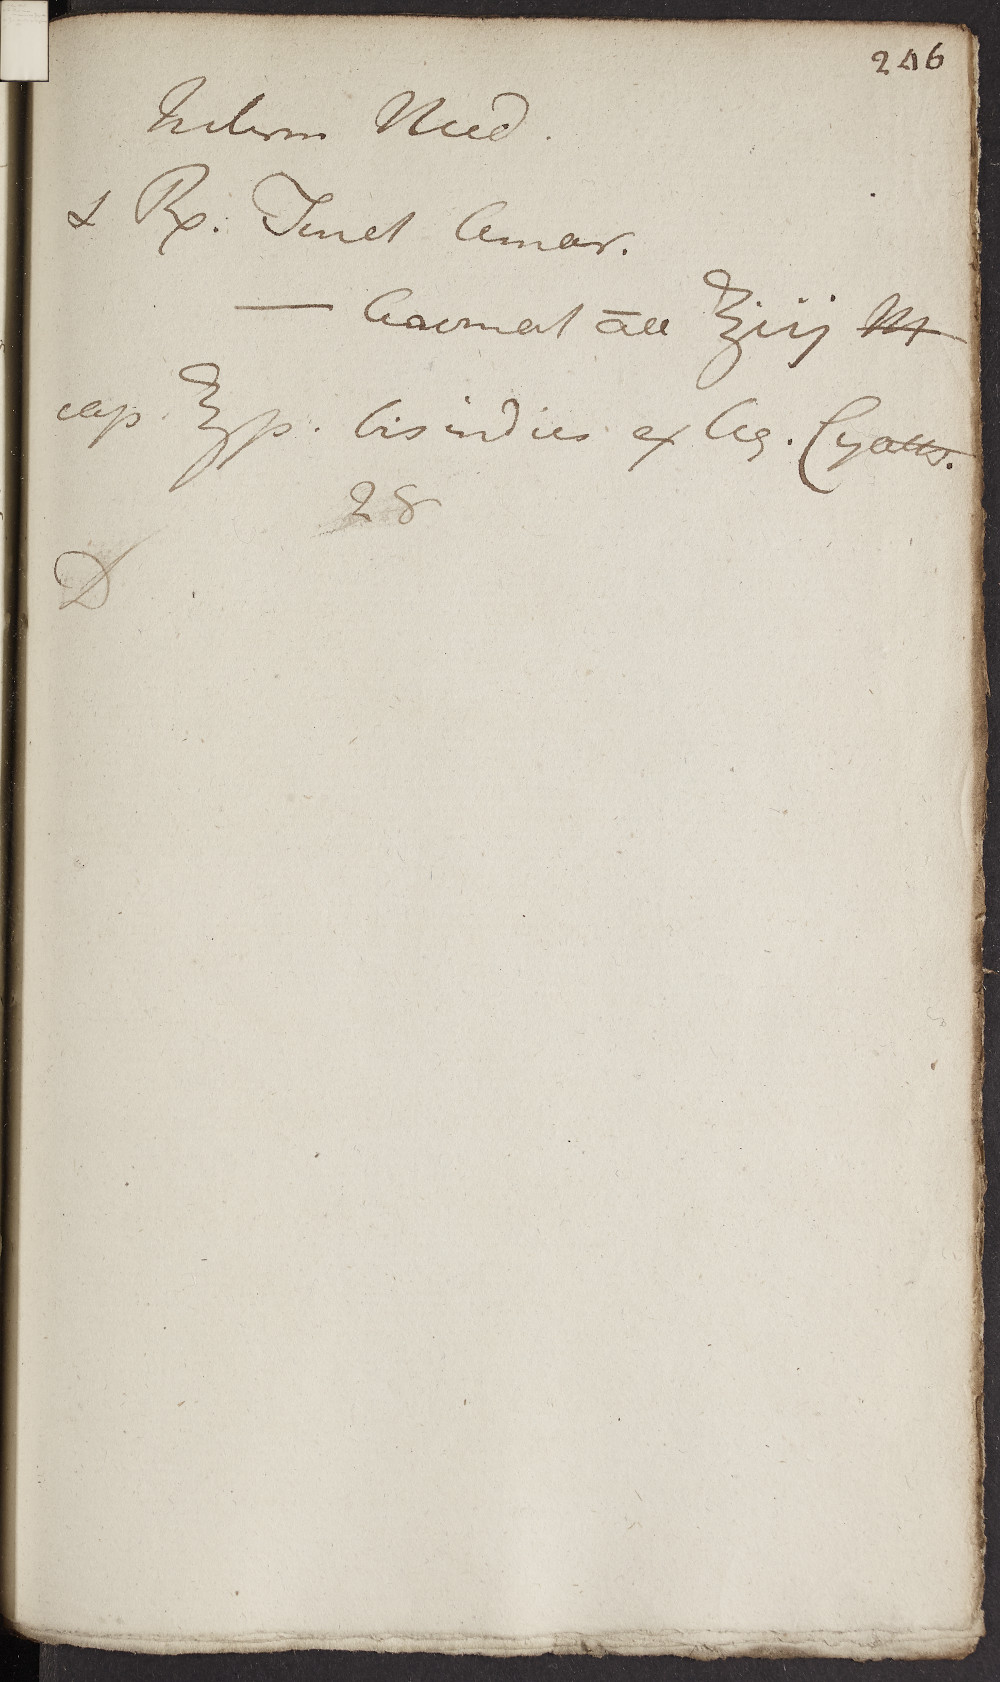 246
Interm Med.
& Rx. Tinct Amar.
— Aromat āā ℥iij M
cap ℥ß. bis indies ex Aq. Cyatho.
28
D